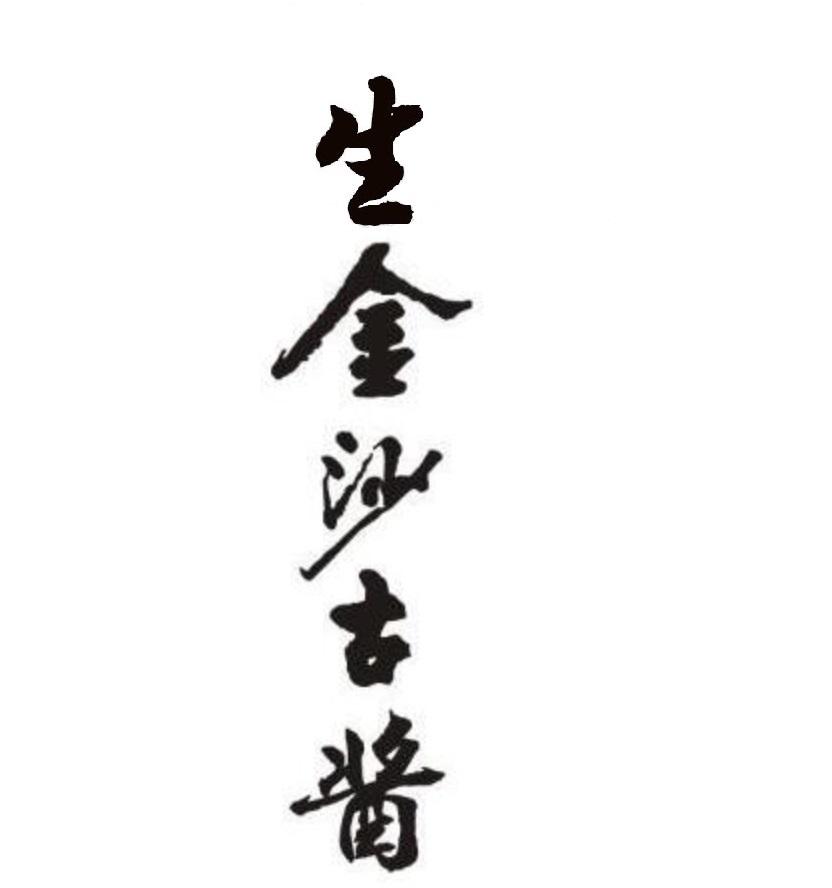 生金沙古醬